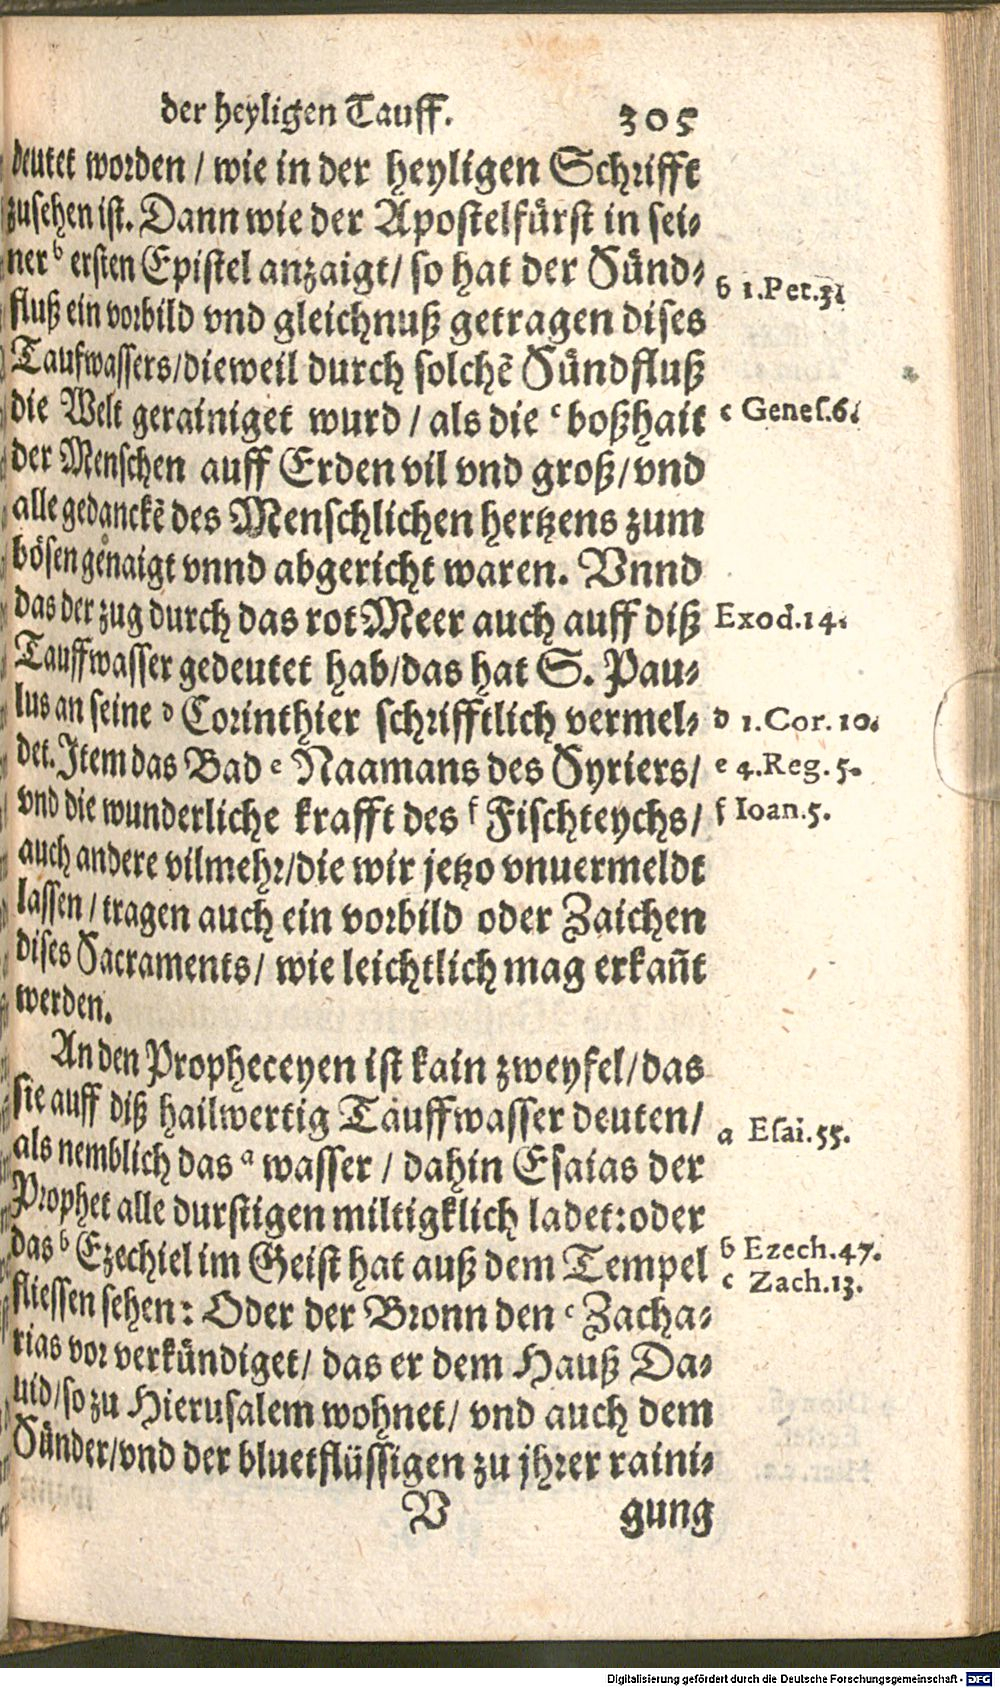 der heyligen Tauff. 305
deutet worden / wie in der heyligen Schrifft
zusehen ist. Dann wie der Apostelfürst in sei-
ner b ersten Epistel anzaigt / so hat der Sünd-
b 1.Pet.3.
fluß ein vorbild vnd gleichnuß getragen dises
Taufwassers/dieweil durch solchẽ Sündfluß
die Welt gerainiget wurd / als die c boßhait
c Genes.6.
der Menschen auff Erden vil vnd groß/vnd
alle gedanckẽ des Menschlichen hertzens zum
bösen genaigt vnnd abgericht waren. Vnnd
das der zug durch das rot Meer auch auff diß
Exod.14.
Tauffwasser gedeutet hab/das hat S. Pau-
lus an seine d Corinthier schrifftlich vermel-
d 1.Cor.10.
det. Item das Bad e Naamans des Syriers/
e 4.Reg.5.
vnd die wunderliche krafft des f Fischteychs/
f Ioan.5.
auch andere vilmehr/die wir jetzo vnuermeldt
lassen / tragen auch ein vorbild oder Zaichen
dises Sacraments/ wie leichtlich mag erkañt
werden.
An den Propheceyen ist kain zweyfel/das
sie auff diß hailwertig Tauffwasser deuten/
als nemblich das a wasser / dahin Esaias der
a Esai.55.
Prophet alle durstigen miltigklich ladet: oder
das b Ezechiel im Geist hat auß dem Tempel
b Ezech.47.
fliessen sehen: Oder der Bronn den c Zacha-
c Zach.13.
rias vor verkündiget/ das er dem Hauß Da-
uid/so zu Hierusalem wohnet/ vnd auch dem
Sünder/vnd der bluetflüssigen zu jhrer raini-
V gung
Digitalisierung gefördert durch die Deutsche Forschungsgemeinschaft - DFG